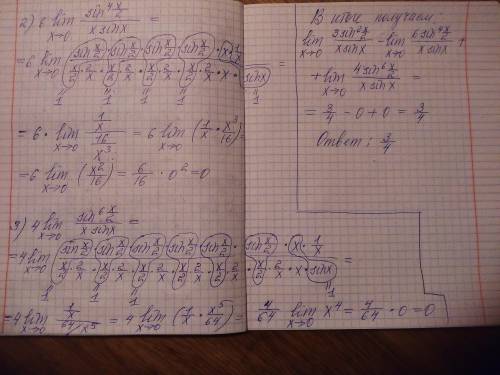 2) 6 lim x→0 sin⁴ x/2 / x sinx =
= 6 lim x→0 sin x/2 · sin x/2 · sin x/2 · sin x/2 · x · 1/x / x/2 · 2/x · x/2 · 2/x · x/2 · 2/x · x/2 · 2/x · x · sinx =
1 1 1 1 1
= 6 · lim x→0 1/x / 16/x³ = 6 lim x→0 (1/x · x³/16) =
= 6 lim x→0 (x²/16) = 6/16 · 0² = 0
3) 4 lim x→0 sin⁶ x/2 / x sinx =
= 4 lim x→0 sin x/2 · sin x/2 · sin x/2 · sin x/2 · sin x/2 · sin x/2 · x · 1/x / x/2 · 2/x · x/2 · 2/x · x/2 · 2/x · x/2 · 2/x · x/2 · 2/x · x/2 · 2/x · x · sinx =
1 1 1 1
= 4 lim x→0 1/x / 64/x⁵ = 4 lim x→0 (1/x · x⁵/64) = 4/64 lim x→0 x⁴ = 4/64 · 0 = 0
В итоге получаем
lim x→0 3sin² x/2 / x sinx - lim x→0 6sin⁴ x/2 / x sinx +
+ lim x→0 4sin⁶ x/2 / x sinx =
= 3/4 - 0 + 0 = 3/4
Ответ: 3/4